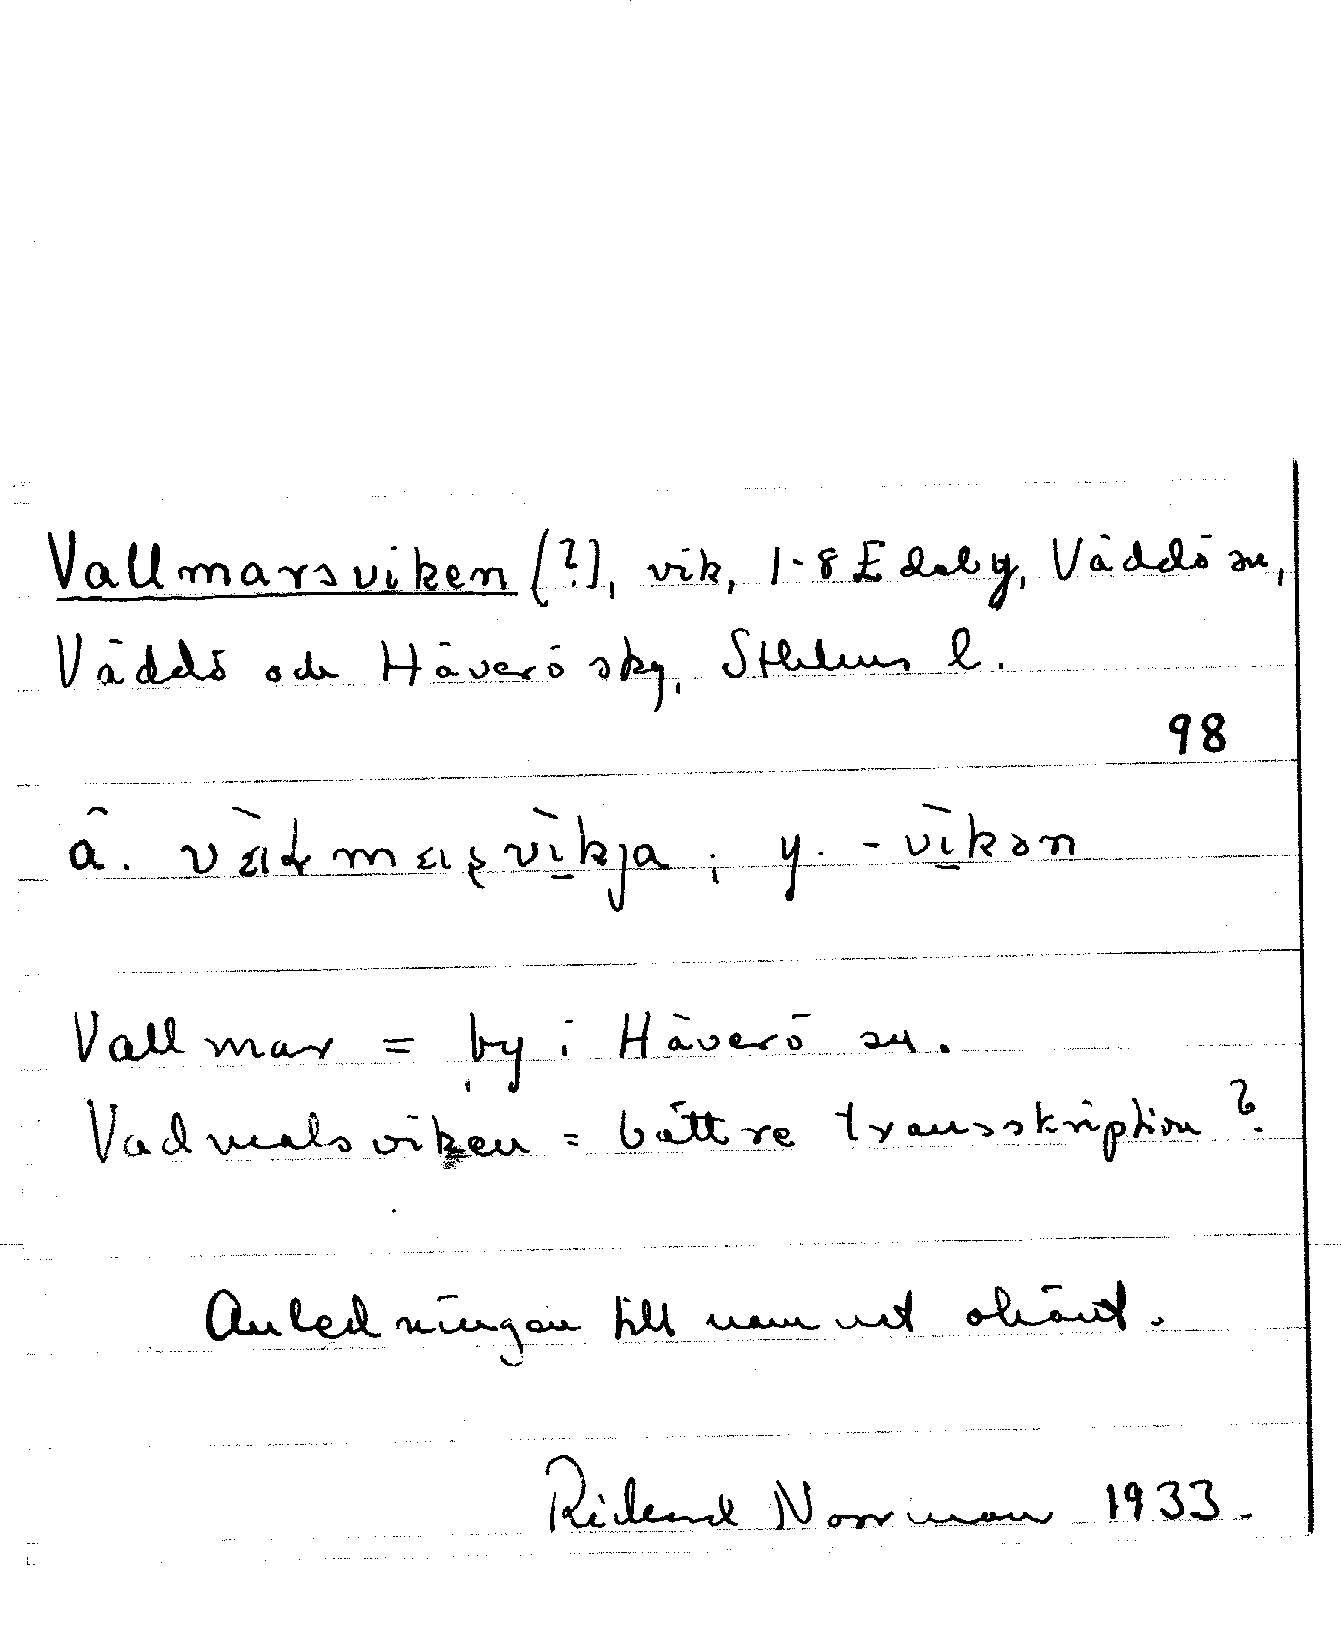 Vallmarsviken (?), vik, 1-8 Edeby, Väddö sn,
Väddö och Häverö skg, Sthlms l.
98
ä. y. -vìkən
Vallmar = by i Häverö sn.
Vadmalsviken = bättre transskription?
Anledningen till namnet okänt.
Rickard Norrman 1933.